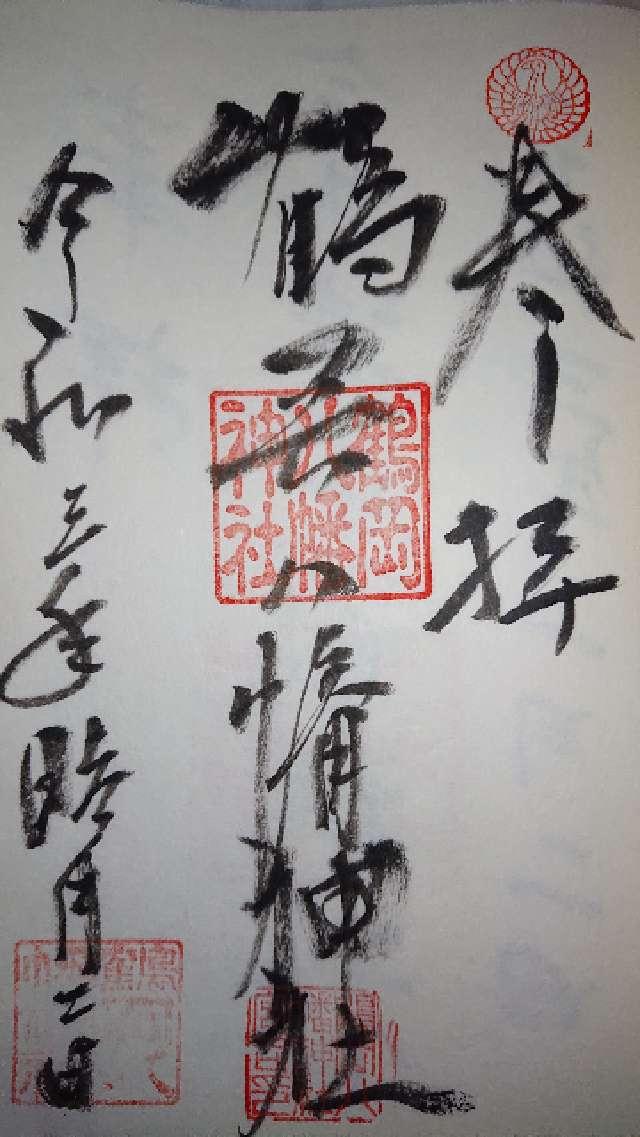 参拝
鶴岡八幡神社
鶴岡
八幡
神社
令和三年睦月二日